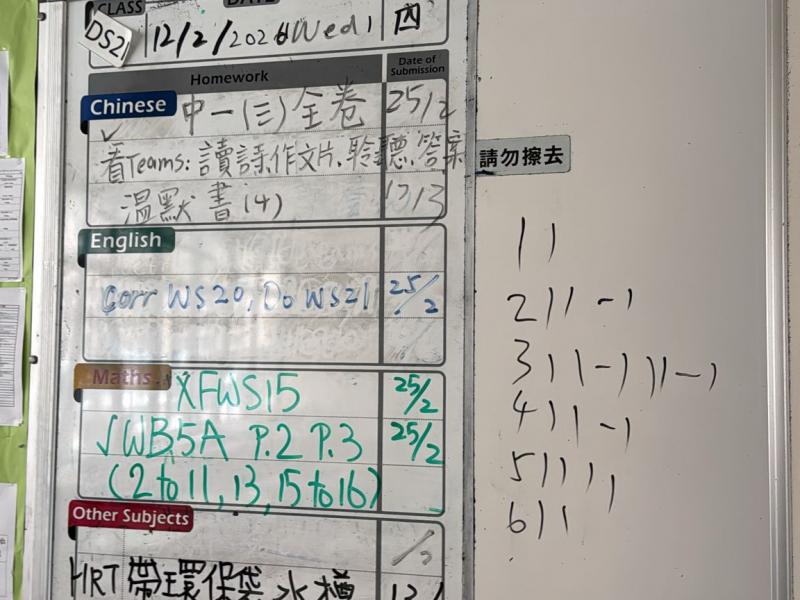 CLASS DATE
DS2 12/2/2026 Wed 四
Homework Date of Submission
Chinese 中一(三)全卷 25/2
看Teams:讀詩,作文片,聆聽,答案
溫默書(4) 13/3
請勿擦去
English
Corr WS20, Do WS21 25/2
Maths XFWS15 25/2
√WB5A P.2 P.3 25/2
(2 to 11, 13, 15 to 16)
Other Subjects
HRT 帶環保袋 水樽
1 | |
2 | | - |
3 | | - | | | - |
4 | | - |
5 | | | |
6 | |